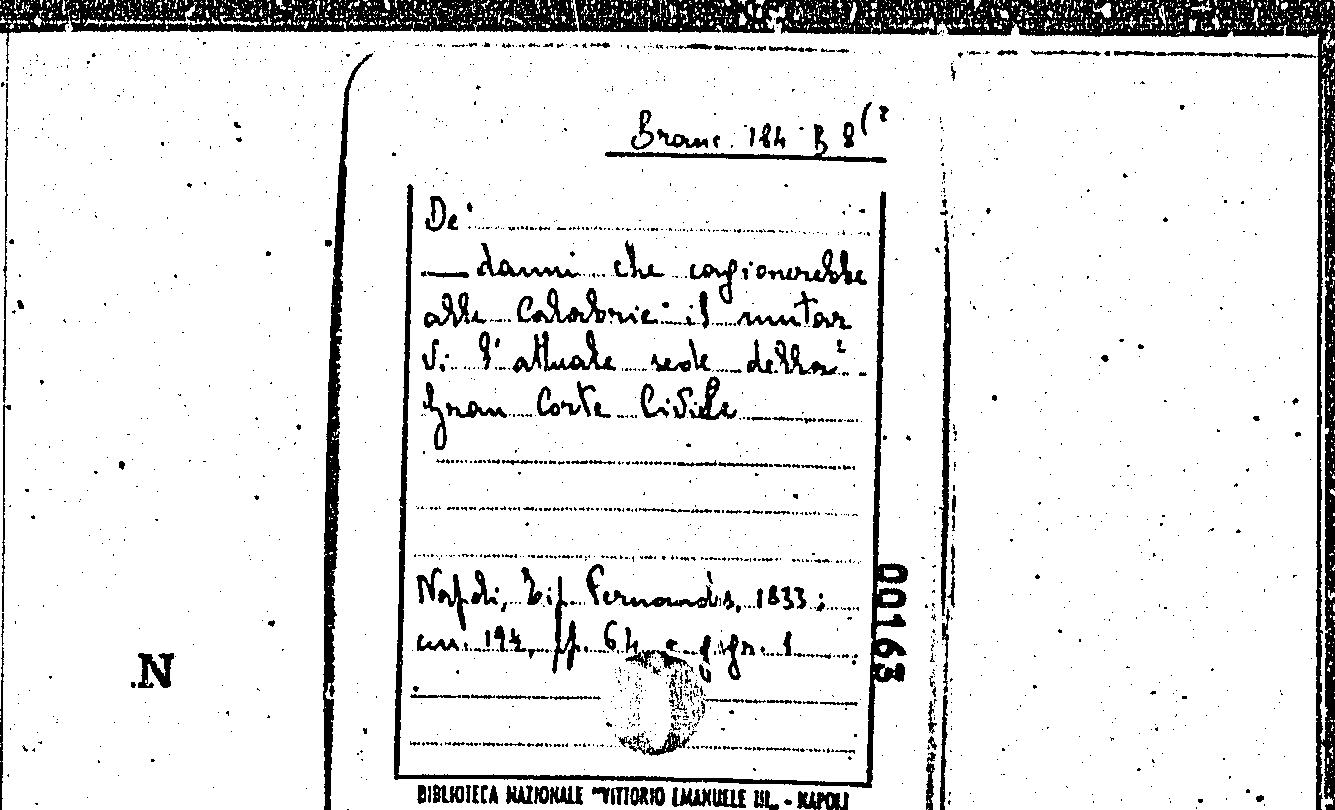 Branc. 184 B 8(2
De'
— danni che cagionerebbe
alle Calabrie il mutar
si l'attuale sede della
Gran Corte Civile
Napoli, Tip. Fernandes, 1833;
cm. 19½, pp. 64 e gr. 1
00163
N
BIBLIOTECA NAZIONALE "VITTORIO EMANUELE III„ - NAPOLI